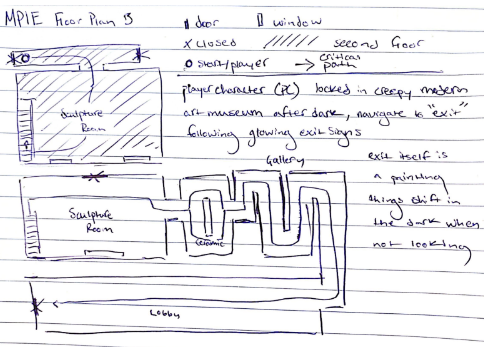 MPIE Floor Plan B
door
window
x closed
second floor
o start/player
→ critical path
player character (PC) locked in creepy modern
art museum after dark, navigate to "exit"
following glowing exit signs
Gallery
exit itself is
a painting
things shift in
the dark when
not looking
Sculpture
Room
Sculpture
Room
Ceramic
Lobby